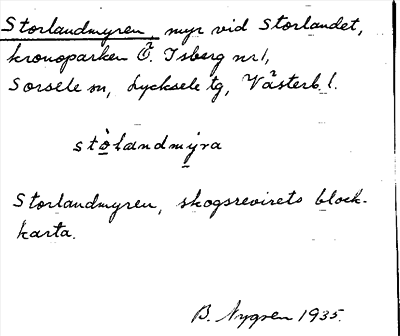 Storlandmyren, myr vid Storlandet,
kronoparken Ö. Isberg nr 1,
Sorsele sn, Lycksele tg, Västerb. l.
stò̱landmy̱ra
Storlandmyren, skogsrevirets block-
karta.
B. Nygren 1935.